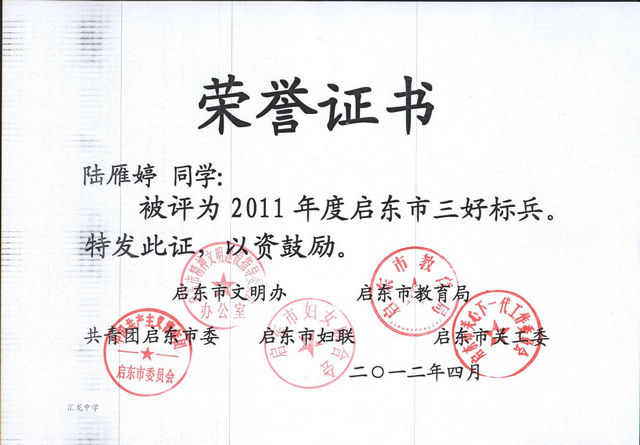 荣誉证书
陆雁婷 同学:
被评为2011年度启东市三好标兵。
特发此证，以资鼓励。
启东市文明办 启东市教育局
共青团启东市委 启东市妇联 启东市关工委
二〇一二年四月
汇龙中学
办公室
启东市教育局
启东市妇女联合会
启东市委员会